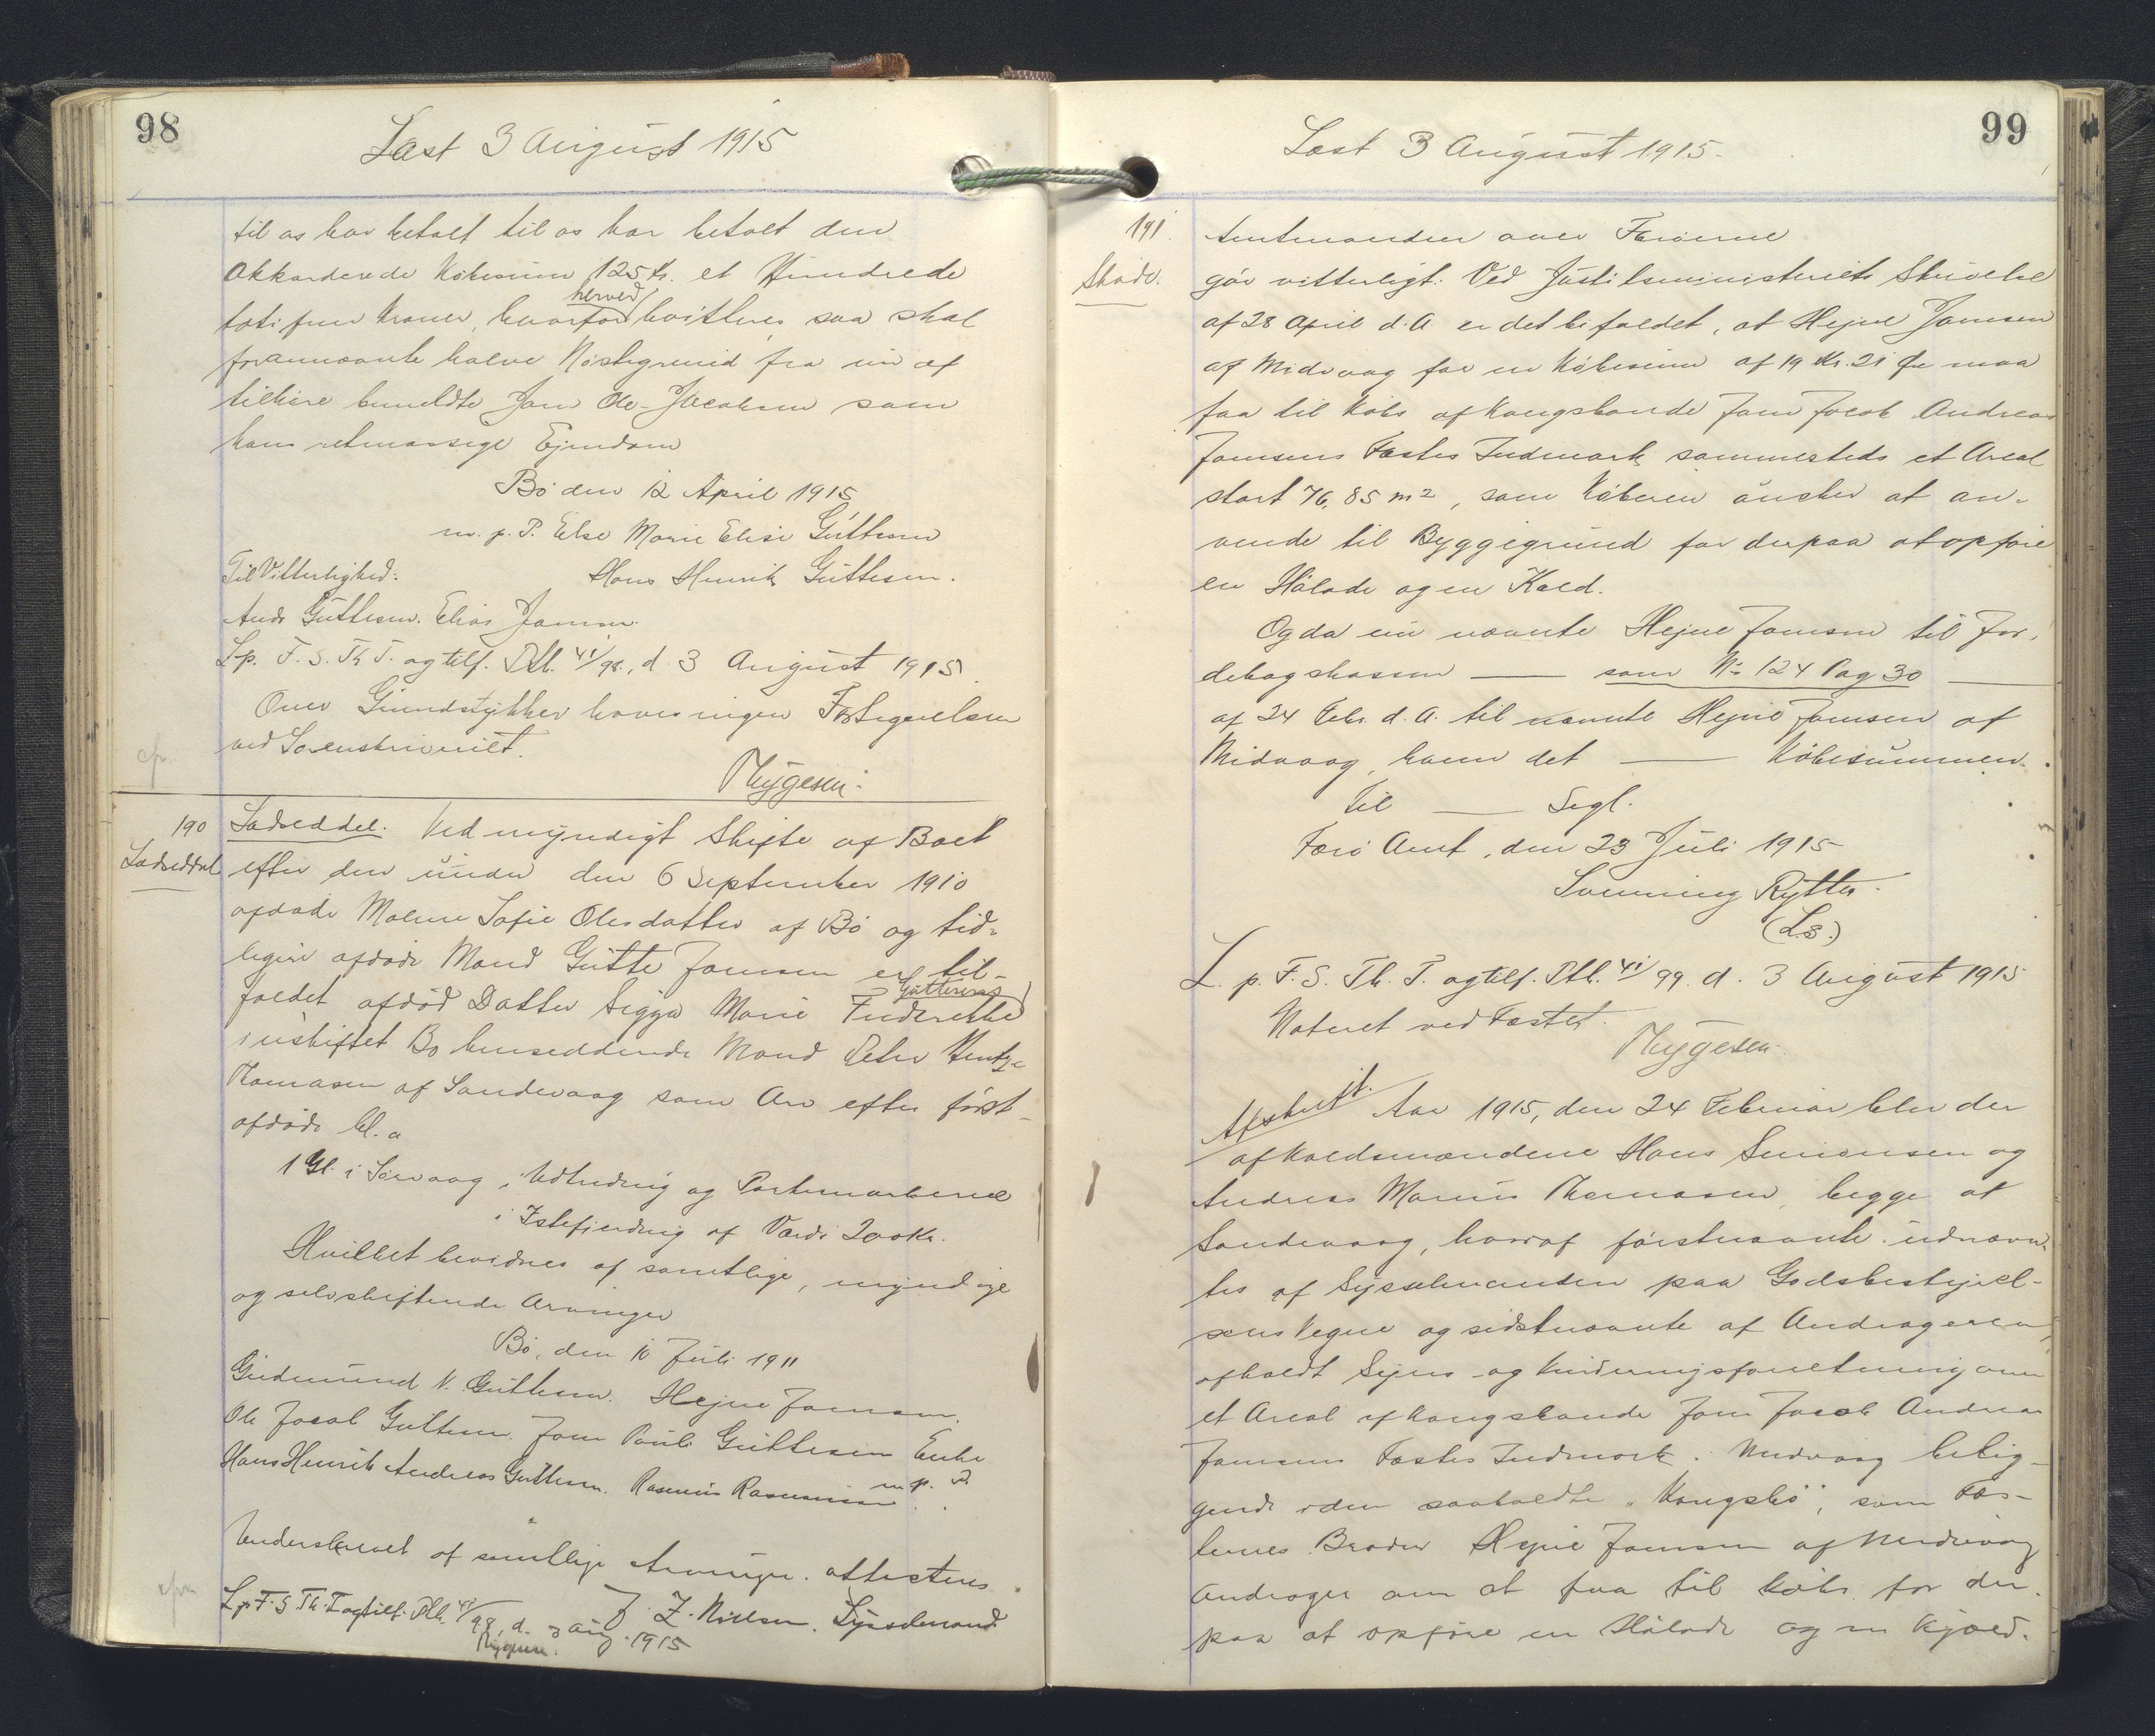 98
Læst 3 August 1915
til os har betalt til os har betalt den
akkorderede Købesum 125 Kr. et Hundrede
herved
toti fem Kroner, hvorfor kvitteres, saa skal
forannævnte halve Nöstegrund fra nu af
tilhöre bemeldte Joen Ole Jacobsen som
hans retmæssige Ejendom
Bö den 12 April 1915
m. p. P. Else Marie Elise Guttesen
Til Vitterlighed:
Hans Henrik Guttesen.
Andr Guttesen. Elias Joensen.
L. p. F. S. Th T. og tilf. Ptk. 41/98, d. 3 August 1915.
Over Grundstykker haves ingen Fortegnelsen
ved Sorenskriveriet.
Thygesen.
190
Lodseddel
Lodseddel. Ved myndigt Skifte af Boet
efter den under den 6 September 1910
afdøde Malene Sofie Olesdatter af Bö og tid-
ligere afdøde Mand Gutte Joensen er til-
Guttesens
faldet afdød Datter Sigga Marie Frederikke
i uskiftet Bo hensiddende Mand Peter Hentze
Thomasen af Sandevaag som Arv efter först-
afdöde bl. a
1 Gl. i Sörvaag, i Udhedrig og Parkemarkerne
i Istefjerdrig af Værdi 200 Kr.
Hvilket bevidnes af samtlige, myndige
og selvskiftende Arvinger
Bö, den 10 Juli 1911
Gudmund N. Guttesen. Hejne Joensen.
Ole Jacob Guttesen. Joen Pauli Guttesen Enke
m. p. P.
Hans Henrik Andreas Guttesen. Rasmus Rasmussen.
Underskrevet af samtlige Arvinger. attesteres
J. Z. Nielsen. Sysselmand
L. p. F. S Th. T og tilf. Ptk. 41/98, d. 3 Aug. 1915
Thygesen.
99
Læst 3 August 1915.
191.
Sköde.
Amtmanden over Færöerne
gör vitterligt: Ved Justitsministeriets Skrivelse
af 28 April d. A. er det bifaldet, at Hejne Joensen
af Midvaag for en Købesum af 19 Kr. 21 Øre maa
faa til Köbs af Kongsbonde Joen Jacob Andreas
Joensens Fæstes Indmark sammesteds et Areal
stort 76,85 m2, som Köberen önsker at an-
vende til Byggegrund for derpaa at opföre
en Hölade og en Kæld.
Og da nu nævnte Hejne Joensen til Jor-
debogskassen —— som No 124 Pag 30 ——
af 24 Febr. d. A. til nævnte Hejne Joensen af
Midvaag, ham det —— Købesummen.
Til —— Segl.
Færö Amt, den 23 Juli 1915
Svenning Rytter.
(L.S.)
L. p. F. S. Th. T. og tilf. Ptk. 41/99. d. 3 August 1915
Noteret ved Fæstet.
Thygesen.
Afskrift. Aar 1915, den 24 Februar blev der
af Uvildsmændene Hans Simonsen og
Andreas Marius Thomasen, begge af
Sandevaag, hvoraf förstnævnte udnævn-
tes af Sysselmanden paa Godsbestyrel-
sens Vegne og sidstnævnte af Andrageren,
afholdt Syns- og Vurderingsforretning over
et Areal af Kongsbonde Joen Jacob Andreas
Joensens Fæstes Indmark i Midvaag belig-
gende i den saakaldte „Kongsbö", som Fæs-
terens Broder Hejne Joensen af Midvaag
andrager om at faa til Köbs for der-
paa at opföre en Hölade og en Kjæld.